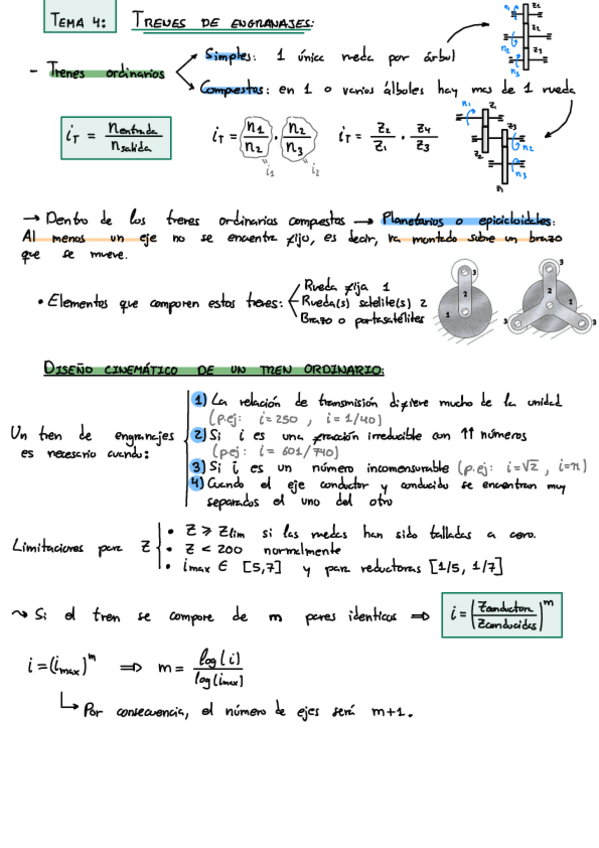 TEMA 4: TRENES DE ENGRANAJES:
- Trenes ordinarios
Simples: 1 única rueda por árbol
Compuestos: en 1 o varios árboles hay mas de 1 rueda
n1 Z1
n2 Z2
n3 Z3
iT = nentrada / nsalida
iT = n1/n2 · n2/n3
i1 i2
iT = Z2/Z1 · Z4/Z3
n1 Z1
Z2 Z3 n2
n3
→ Dentro de los trenes ordinarios compuestos → Planetarios o epicicloidales:
Al menos un eje no se encuentra fijo, es decir, va montado sobre un brazo
que se mueve.
• Elementos que componen estos trenes:
Rueda fija 1
Rueda(s) satélite(s) 2
Brazo o portasatélites
1 2 3
3 2 1 3 3
DISEÑO CINEMÁTICO DE UN TREN ORDINARIO:
Un tren de engranajes
es necesario cuando:
1) La relación de transmisión difiere mucho de la unidad
(p.ej: i=250 , i=1/40)
2) Si i es una fracción irreducible con ↑↑ números
(pej: i= 601/740)
3) Si i es un número incomensurable (p.ej: i=√2 , i=π)
4) Cuando el eje conductor y conducido se encuentran muy
separados el uno del otro
Limitaciones para Z
• Z ⩾ Zlim si las ruedas han sido talladas a cero.
• Z < 200 normalmente
• imax ∈ [5,7] y para reductoras [1/5, 1/7]
↝ Si el tren se compone de m pares identicos ⇒ i = (Zconductora / Zconducidas)^m
i = (imax)^m ⇒ m = log(i) / log(imax)
↳ Por consecuencia, el número de ejes será m+1.